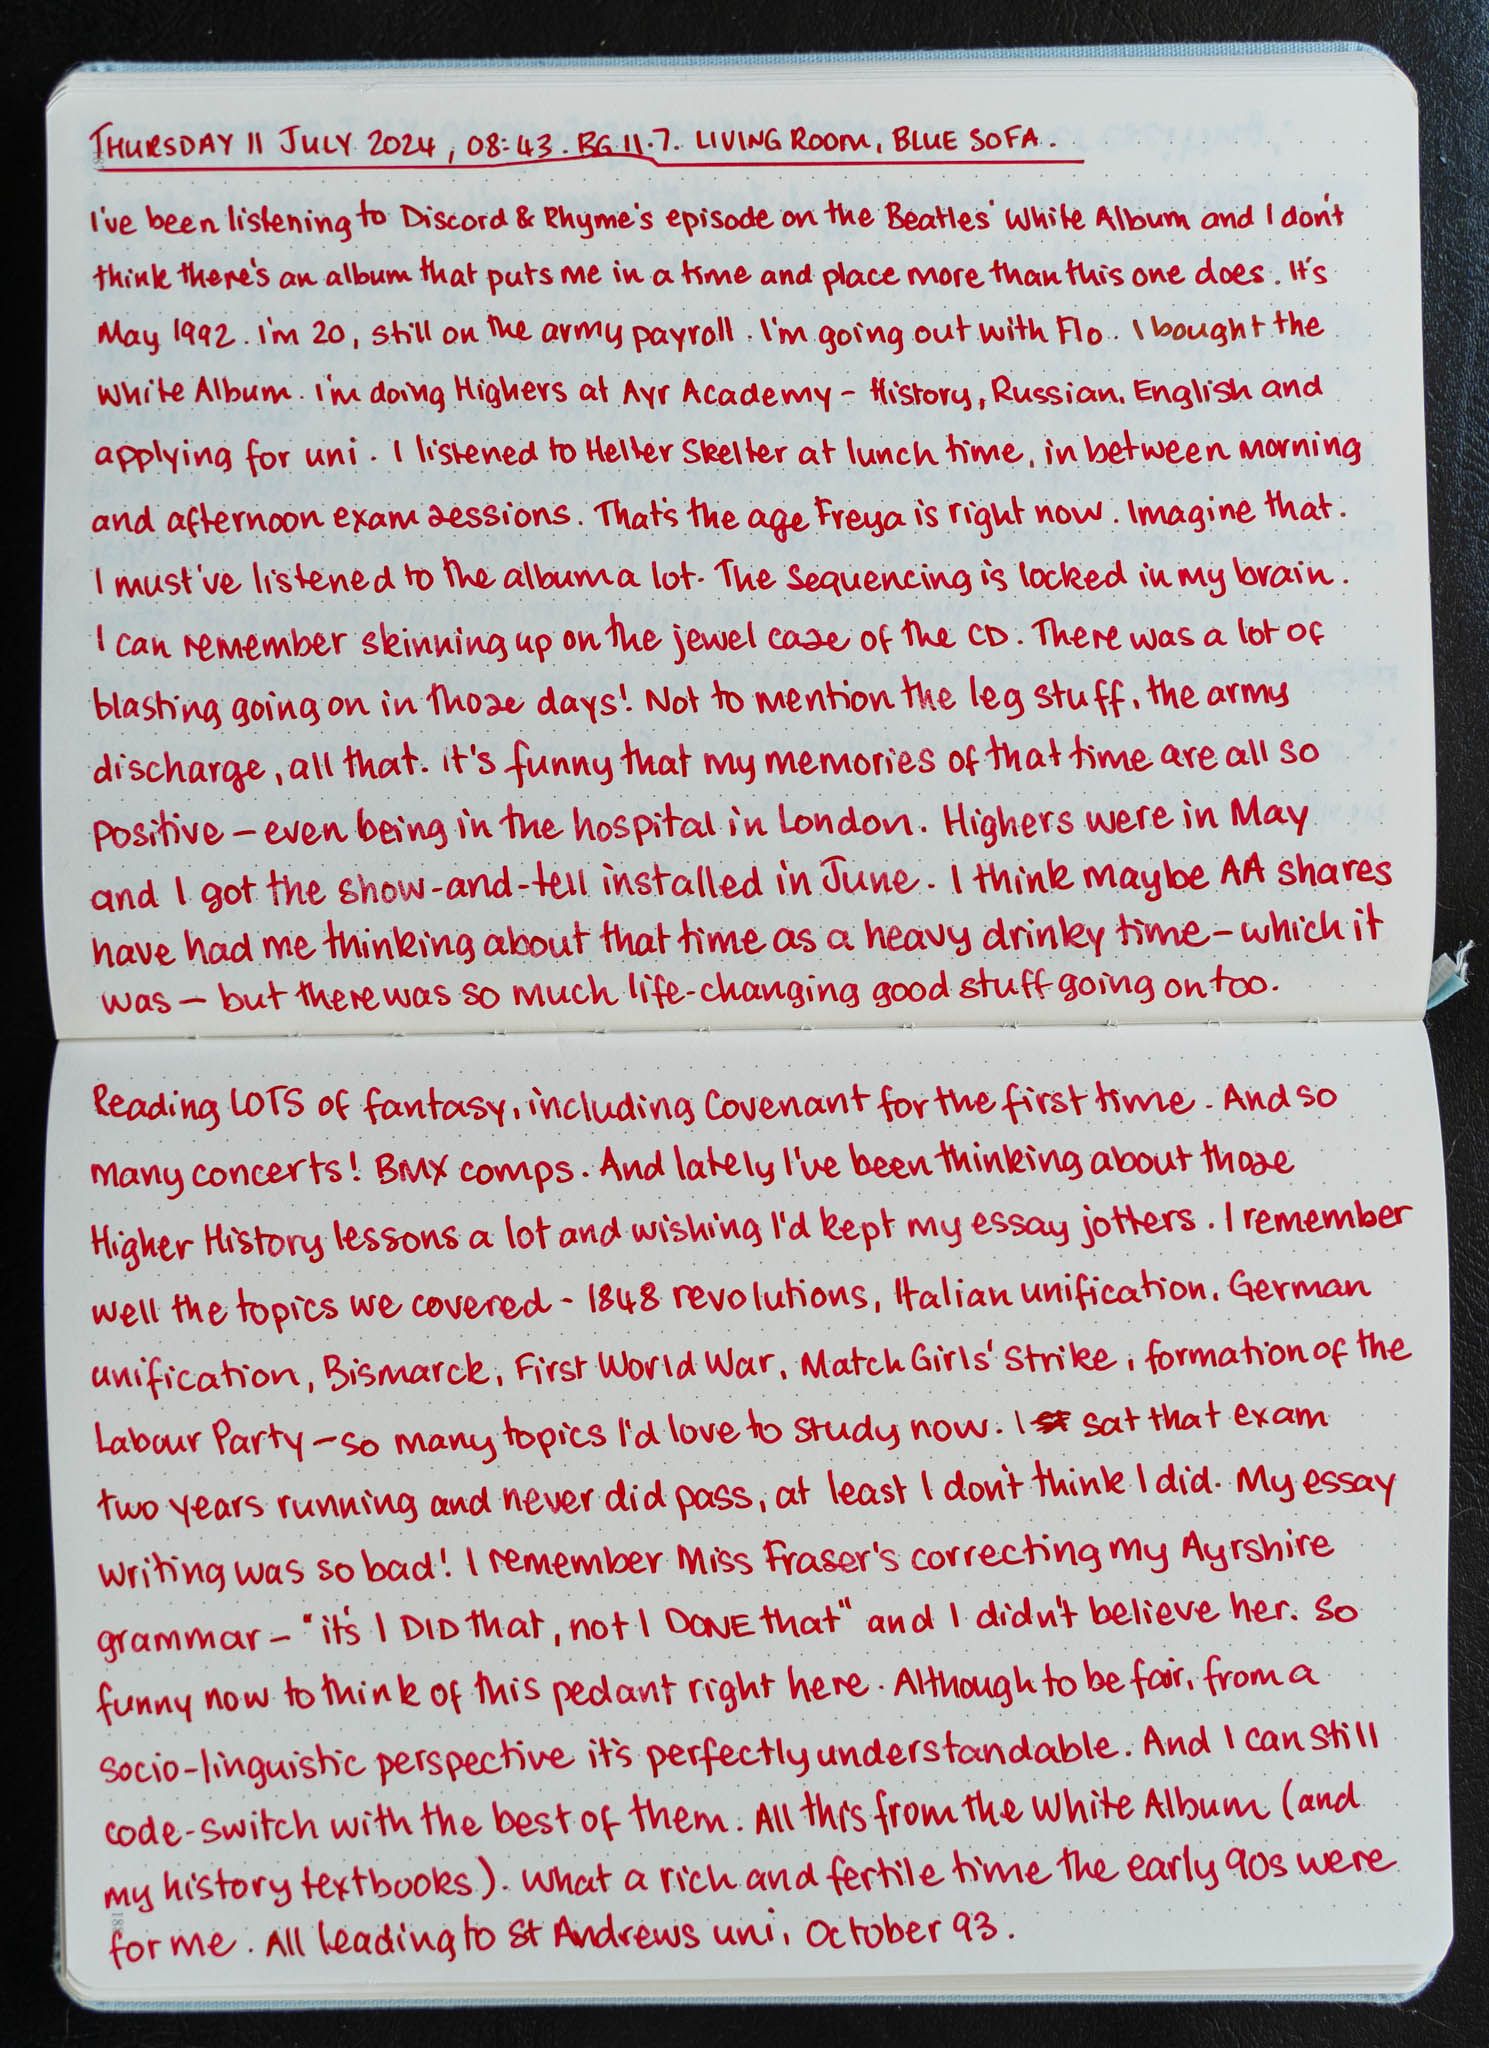 THURSDAY 11 JULY 2024, 08:43. BG 11.7. LIVING ROOM, BLUE SOFA.
I've been listening to Discord & Rhyme's episode on the Beatles' White Album and I don't
think there's an album that puts me in a time and place more than this one does. It's
May 1992. I'm 20, still on the army payroll. I'm going out with Flo. I bought the
White Album. I'm doing Highers at Ayr Academy - History, Russian, English and
applying for uni. I listened to Helter Skelter at lunch time, in between morning
and afternoon exam sessions. That's the age Freya is right now. Imagine that.
I must've listened to the album a lot. The sequencing is locked in my brain.
I can remember skinning up on the jewel case of the CD. There was a lot of
blasting going on in those days! Not to mention the leg stuff, the army
discharge, all that. It's funny that my memories of that time are all so
positive - even being in the hospital in London. Highers were in May
and I got the show-and-tell installed in June. I think maybe AA shares
have had me thinking about that time as a heavy drinky time - which it
was - but there was so much life-changing good stuff going on too.
Reading LOTS of fantasy, including Covenant for the first time. And so
many concerts! BMX comps. And lately I've been thinking about those
Higher History lessons a lot and wishing I'd kept my essay jotters. I remember
well the topics we covered - 1848 revolutions, Italian unification, German
unification, Bismarck, First World War, Match Girls' Strike, formation of the
Labour Party - so many topics I'd love to study now. I sat that exam
two years running and never did pass, at least I don't think I did. My essay
writing was so bad! I remember Miss Fraser's correcting my Ayrshire
grammar - "it's I DID that, not I DONE that" and I didn't believe her. So
funny now to think of this pedant right here. Although to be fair, from a
socio-linguistic perspective it's perfectly understandable. And I can still
code-switch with the best of them. All this from the White Album (and
my history textbooks.). What a rich and fertile time the early 90s were
for me. All leading to St Andrews uni, October 93.